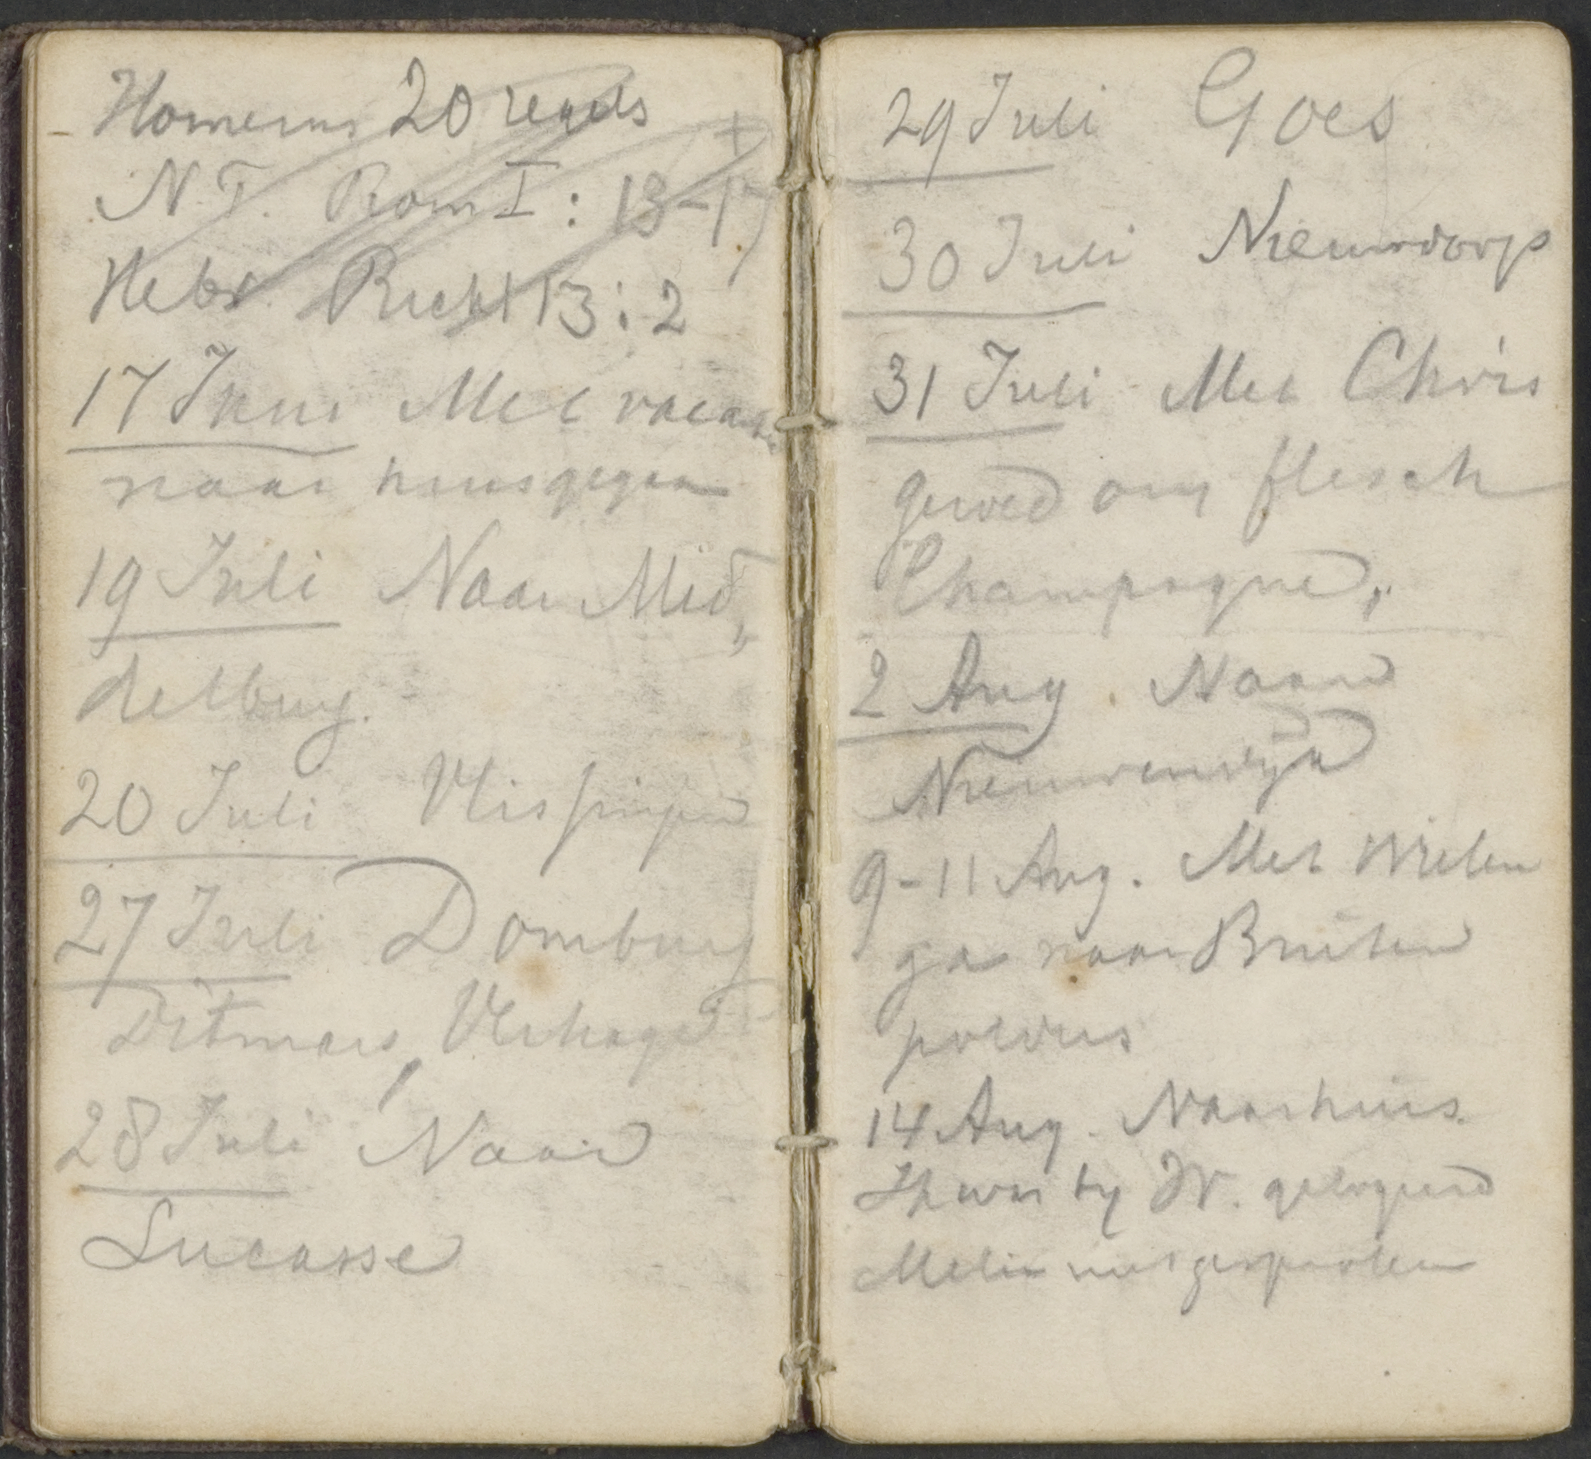 Homerus 20 regels
N.T. Rom I: 13-17
Hebr. Richt 13:2
17 Juni Met vacantie
naar huis gegaan
19 Juli Naar Mid„
delburg.
20 Juli Vlissingen
27 Juli Domburg
Ditmars, Verhage
28 Juli Naar
Lucasse
29 Juli Goes
30 Juli Nieuwdorp
31 Juli Met Chris
gewed om flesch
Champagne„
2 Aug. Naar
9-11 Aug. Met Wielen
ga naar Buiten
polders
14 Aug. Naar huis.
by W. gelogeerd